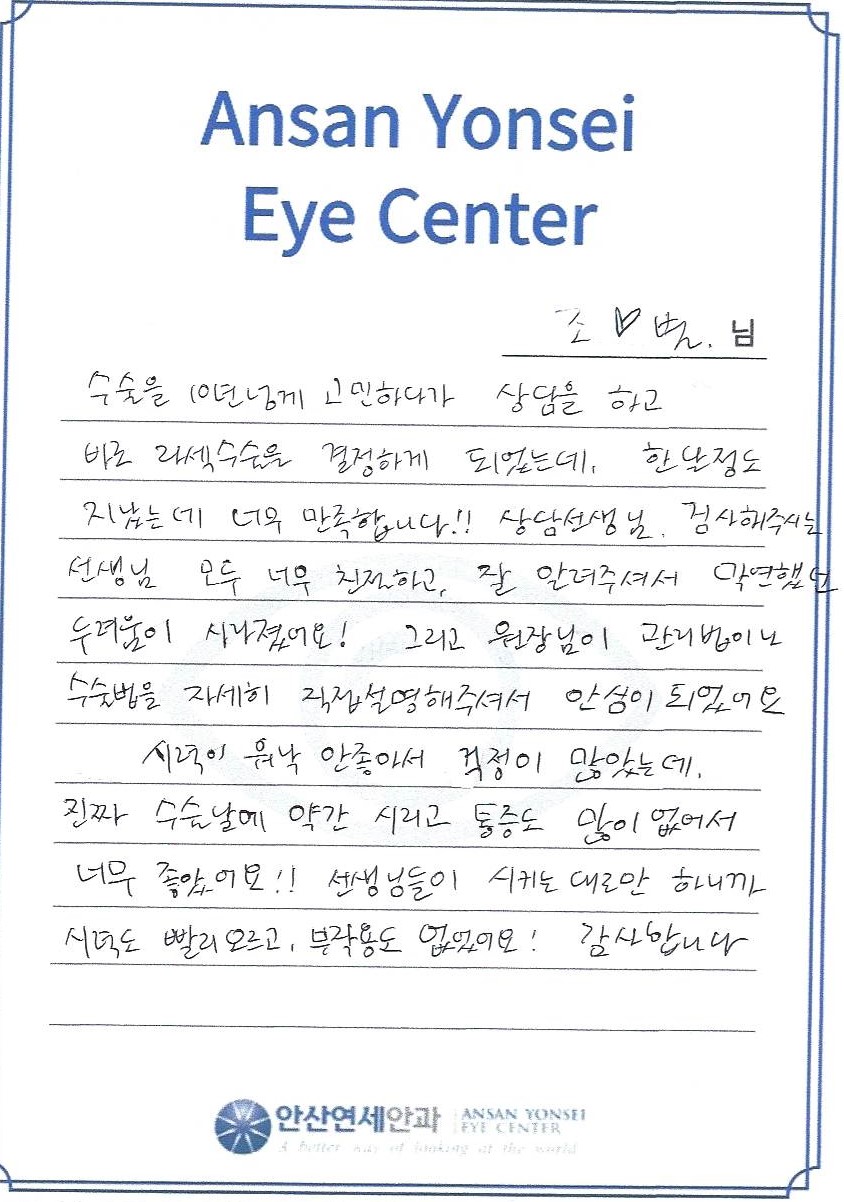 Ansan Yonsei
Eye Center
조 ♡ 별. 님
수술을 10년넘게 고민하다가 상담을 하고
바로 라섹수술을 결정하게 되었는데, 한달정도
지났는데 너무 만족합니다!! 상담선생님, 검사해주시는
선생님 모두 너무 친절하고, 잘 알려주셔서 막연했던
두려움이 사라졌어요! 그리고 원장님이 관리법이나
수술법을 자세히 직접설명해주셔서 안심이 되었어요
시력이 워낙 안좋아서 걱정이 많았는데,
진짜 수술날에 약간 시리고 통증도 많이 없어서
너무 좋았어요!! 선생님들이 시키는대로만 하니까
시력도 빨리오르고, 부작용도 없었어요! 감사합니다
안산연세안과 ANSAN YONSEI
EYE CENTER
A better way of looking at the world